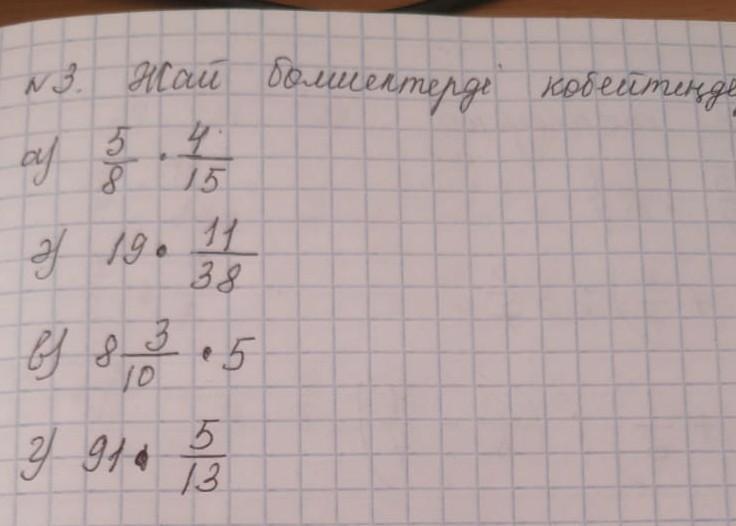 №3. Жай бөлшектерді көбейтіңде
а) 5/8 · 4/15
ә) 19 · 11/38
в) 8 3/10 · 5
г) 91 · 5/13